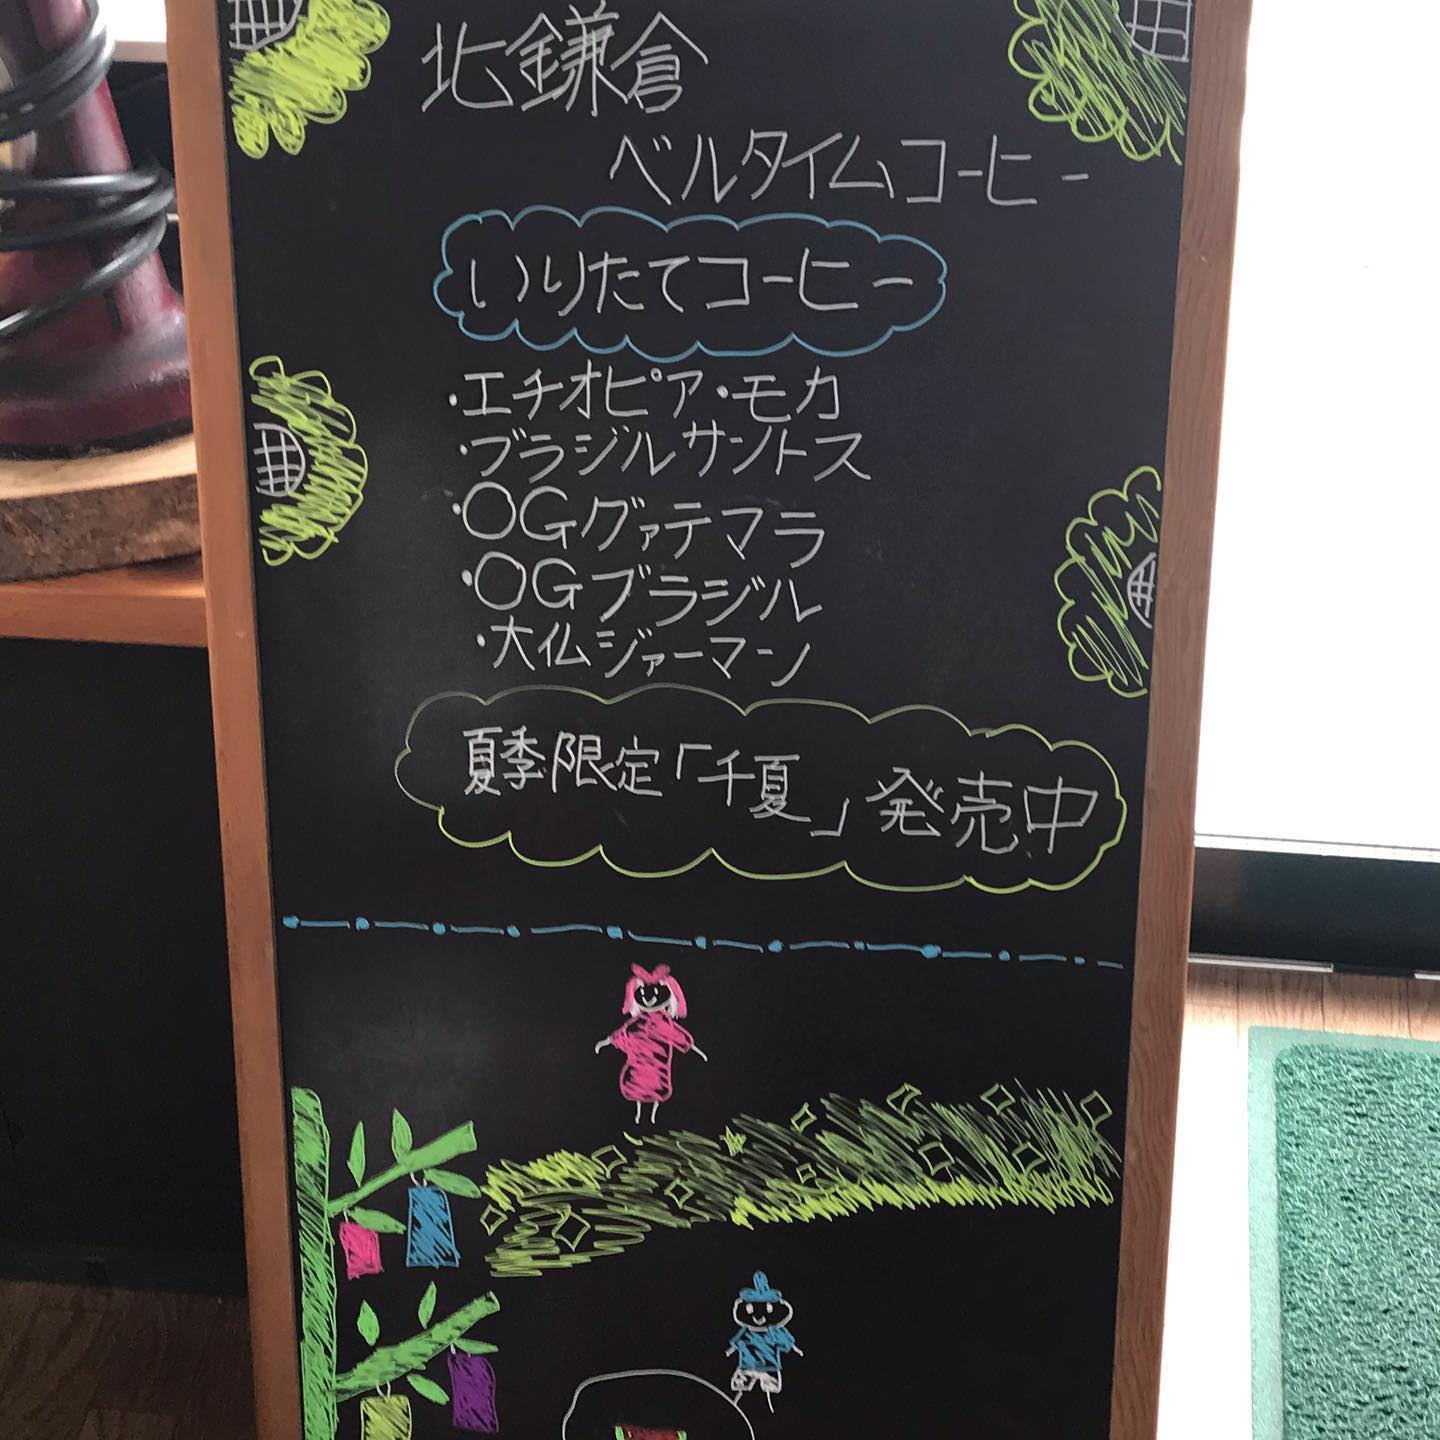 北鎌倉
ベルタイムコーヒー
いりたてコーヒー
・エチオピア・モカ
・ブラジルサントス
・OGグァテマラ
・OGブラジル
・大仏ジャーマン
夏季限定「千夏」発売中